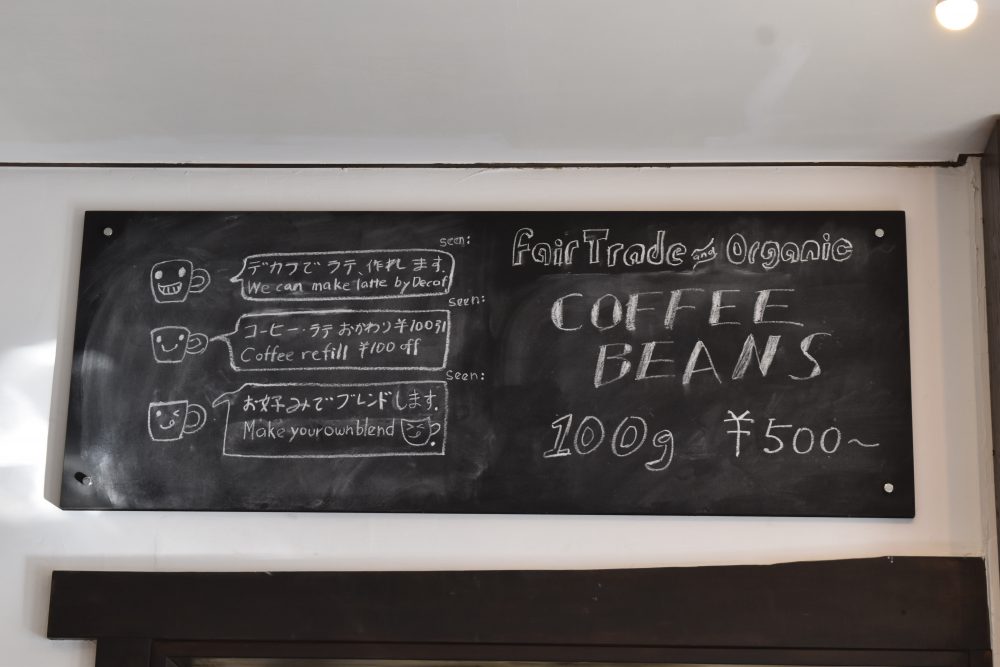 seen:
デカフでラテ、作れます。
We can make latte by Decaf
seen:
コーヒー・ラテおかわり¥100引
Coffee refill ¥100 off
seen:
お好みでブレンドします。
Make your own blend
Fair Trade and Organic
COFFEE
BEANS
100g ¥500~